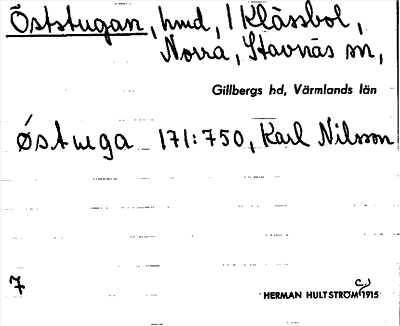 Öststugan, hmd, / Klässbol,
Norra, Stavnäs sn,
Gillbergs hd, Värmlands län
östuga 171:750, Karl Nilsson
7
HERMAN HULTSTRÖM 1915